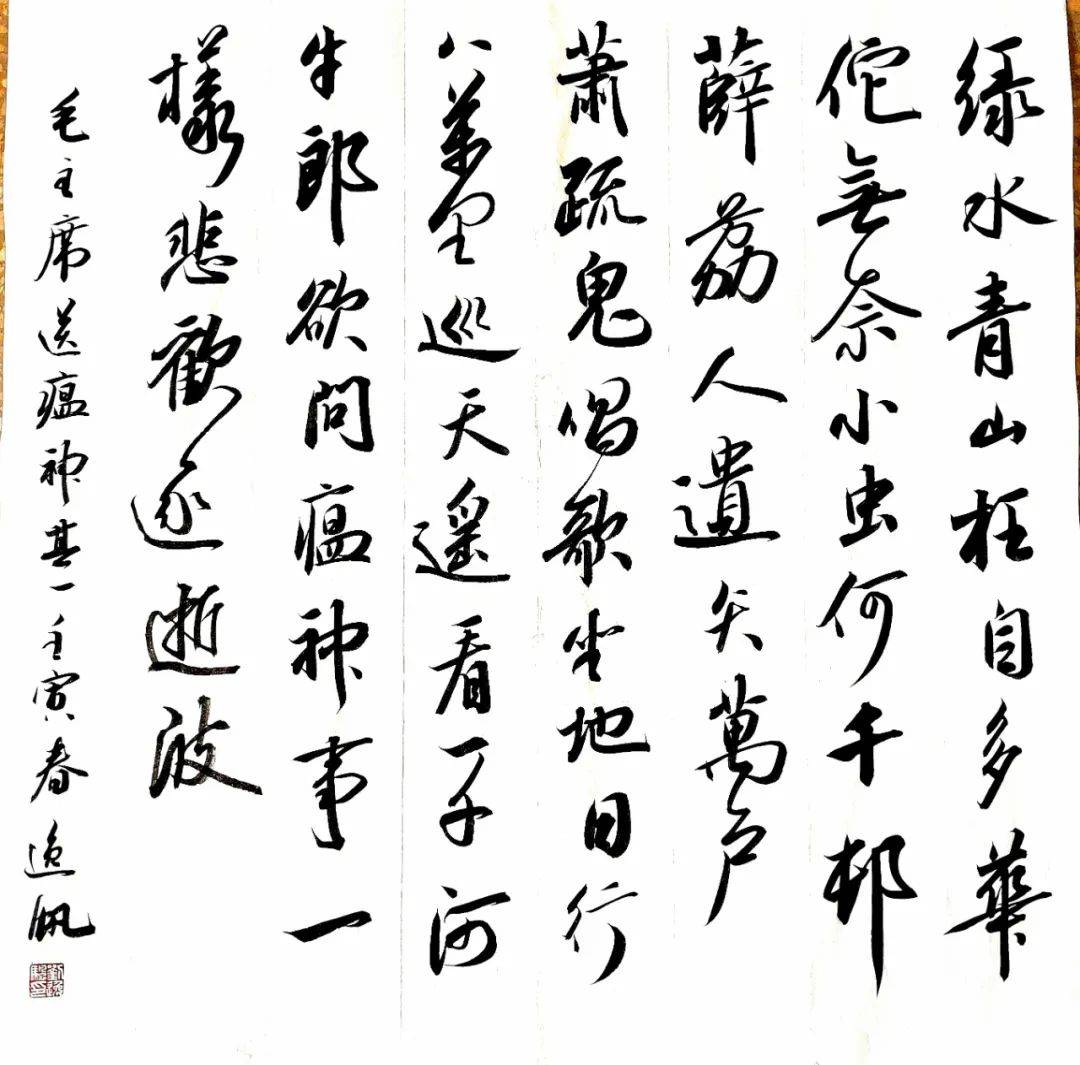 绿水青山枉自多華
佗無奈小虫何千邨
薜荔人遺矢萬户
蕭疏鬼唱歌坐地日行
八萬里巡天遥看一千河
牛郎欲問瘟神事一
樣悲歡逐逝波
毛主席送瘟神其一壬寅春逸帆